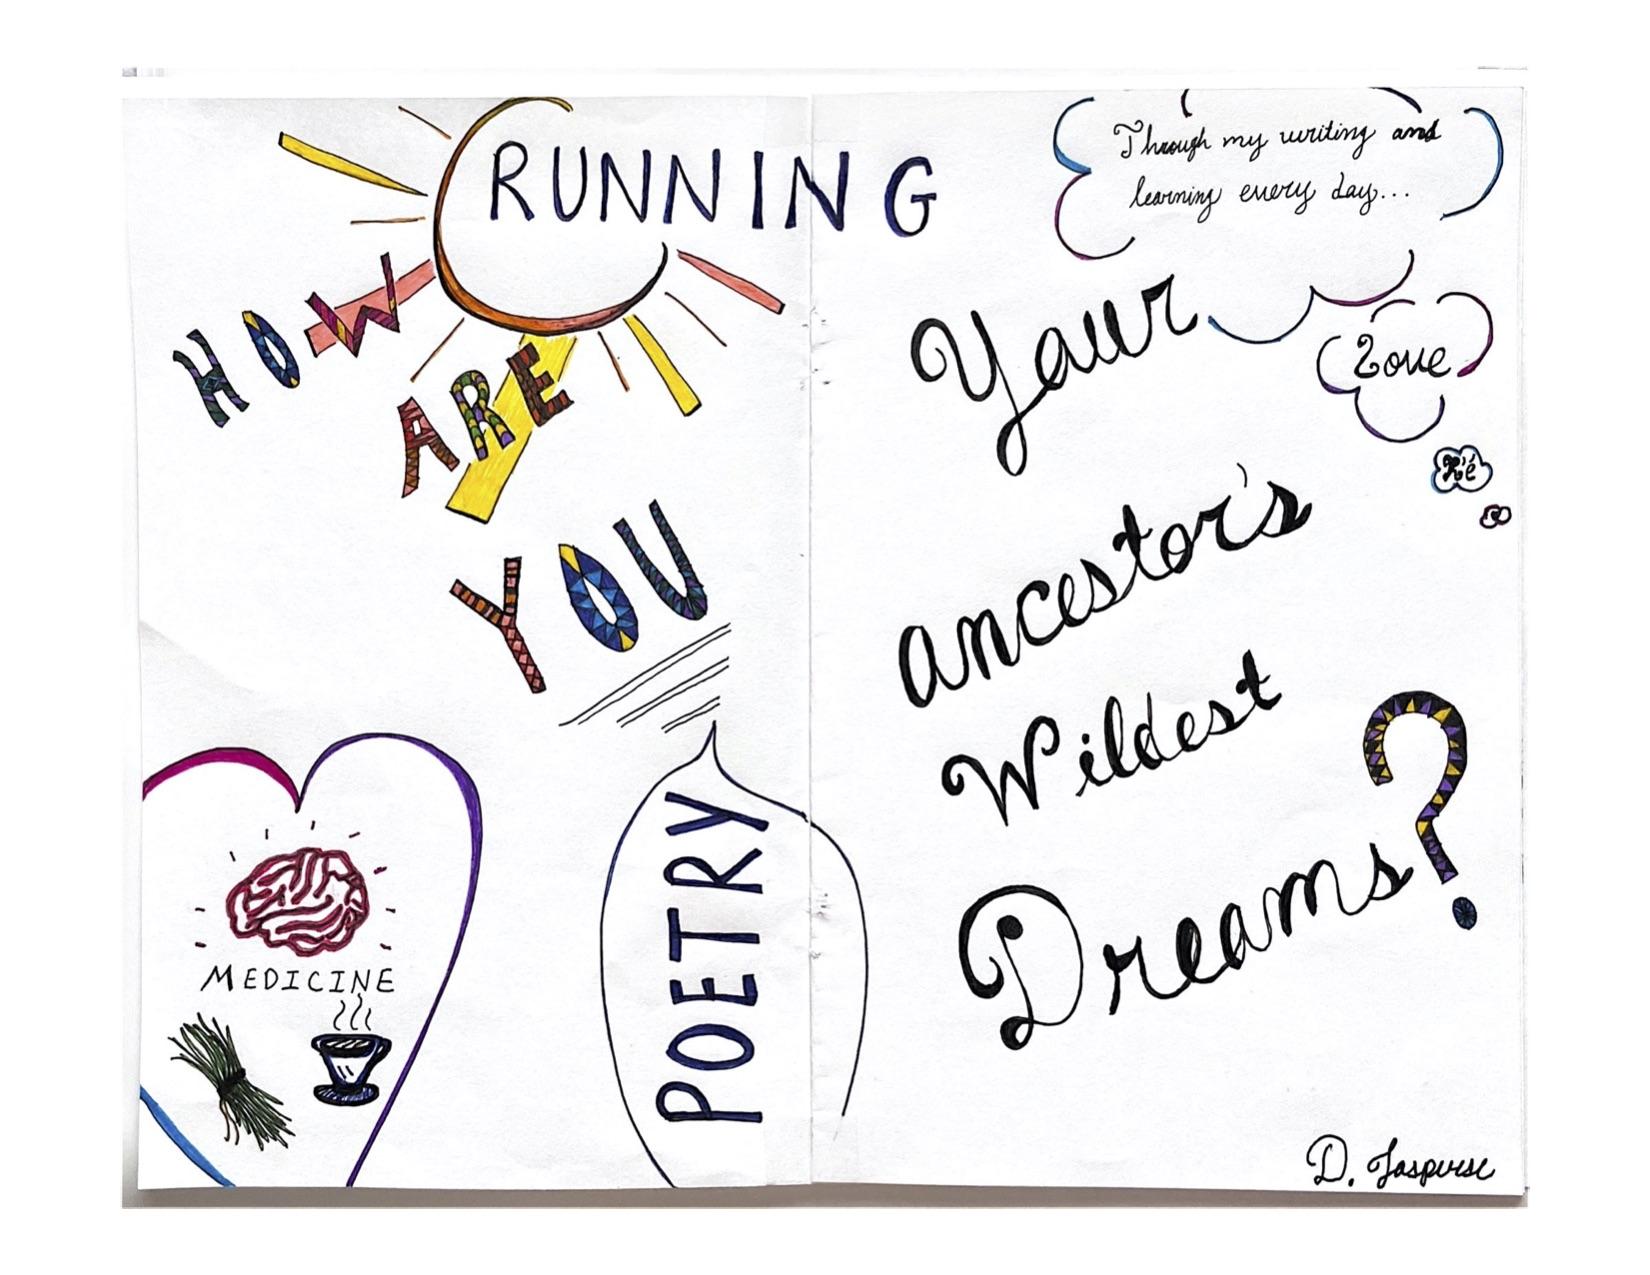 RUNNING
HOW
ARE
YOU
MEDICINE
POETRY
Through my writing and
learning every day...
Love
K'é
Your
ancestor's
Wildest
Dreams?
D. Jasperse